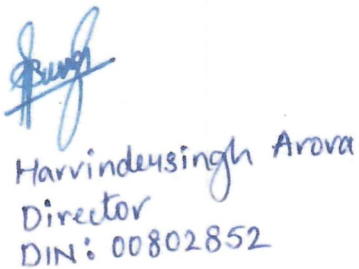 Harvindersingh Arora
Director
DIN: 00802852